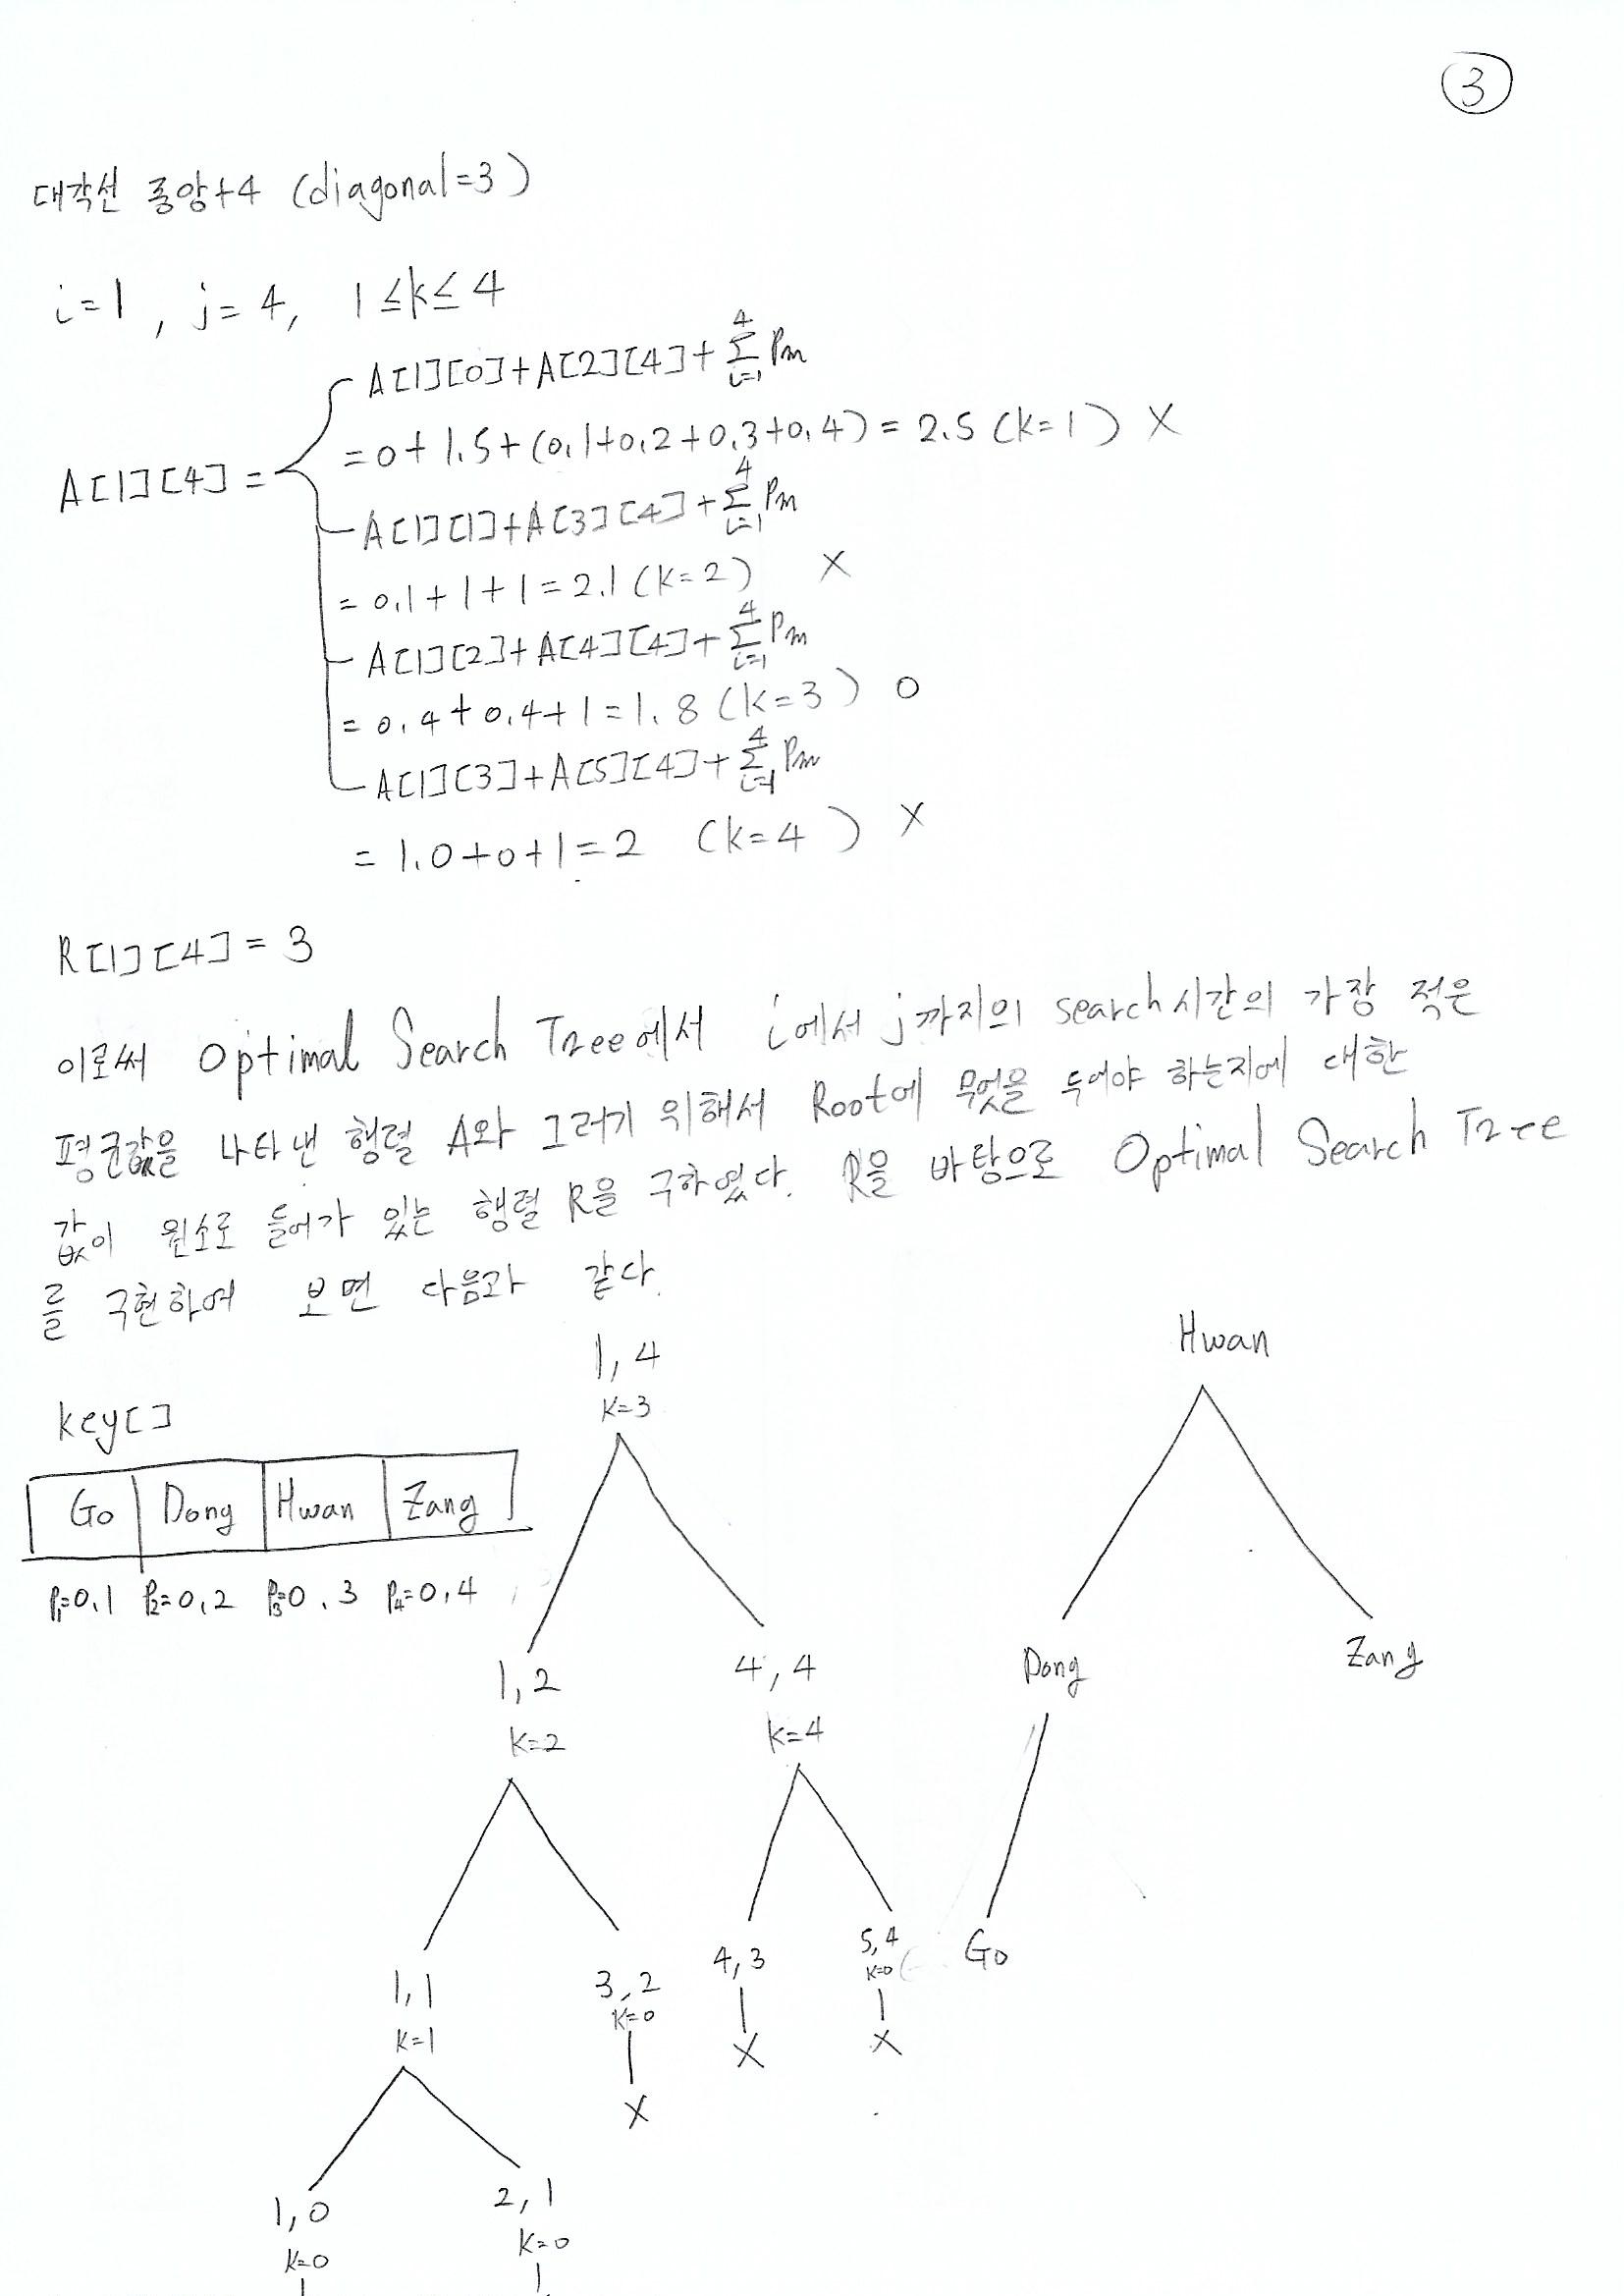 ③
대각선 중앙+4 (diagonal=3)
i=1, j=4, 1≤k≤4
A[1][0]+A[2][4]+∑(i=1,4)Pm
=0+1.5+(0.1+0.2+0.3+0.4)=2.5 (k=1) X
A[1][4]=
A[1][1]+A[3][4]+∑(i=1,4)Pm
=0.1+1+1=2.1 (k=2) X
A[1][2]+A[4][4]+∑(i=1,4)Pm
=0.4+0.4+1=1.8 (k=3) O
A[1][3]+A[5][4]+∑(i=1,4)Pm
=1.0+0+1=2 (k=4) X
R[1][4]=3
이로써 Optimal Search Tree에서 i에서 j까지의 search시간의 가장 적은
평균값을 나타낸 행렬 A와 그러기 위해서 Root에 무엇을 두어야 하는지에 대한
값이 원소로 들어가 있는 행렬 R을 구하였다. R을 바탕으로 Optimal Search Tree
를 구현하여 보면 다음과 같다.
key[]
Go Dong Hwan Zang
P1=0.1 P2=0.2 P3=0.3 P4=0.4
1,4
k=3
1,2 4,4
k=2 k=4
1,1 3,2 4,3 5,4
k=1 k=0 k=0
X X X
1,0 2,1
k=0 k=0
Hwan
Dong Zang
Go